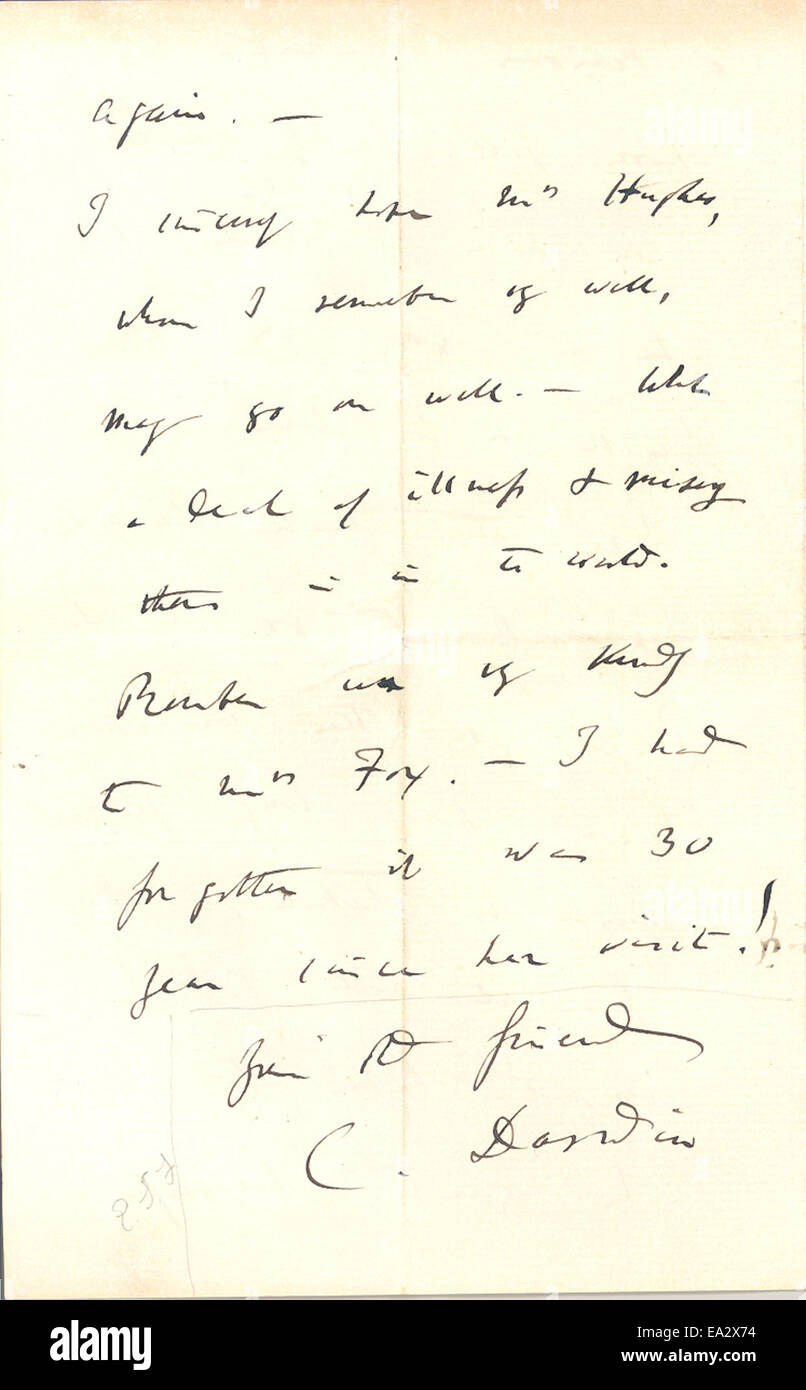 again. —
I sincerely hope Mrs Hughes,
whom I remember vy well,
may go on well. — What
a deal of illness & misery
there is in the world.
Remember me vy kindly
to Mrs Fox. — I had
forgotten it was 30
years since her visit!
Your old friend
C. Darwin
257
alamy
Image ID: EA2X74
www.alamy.com